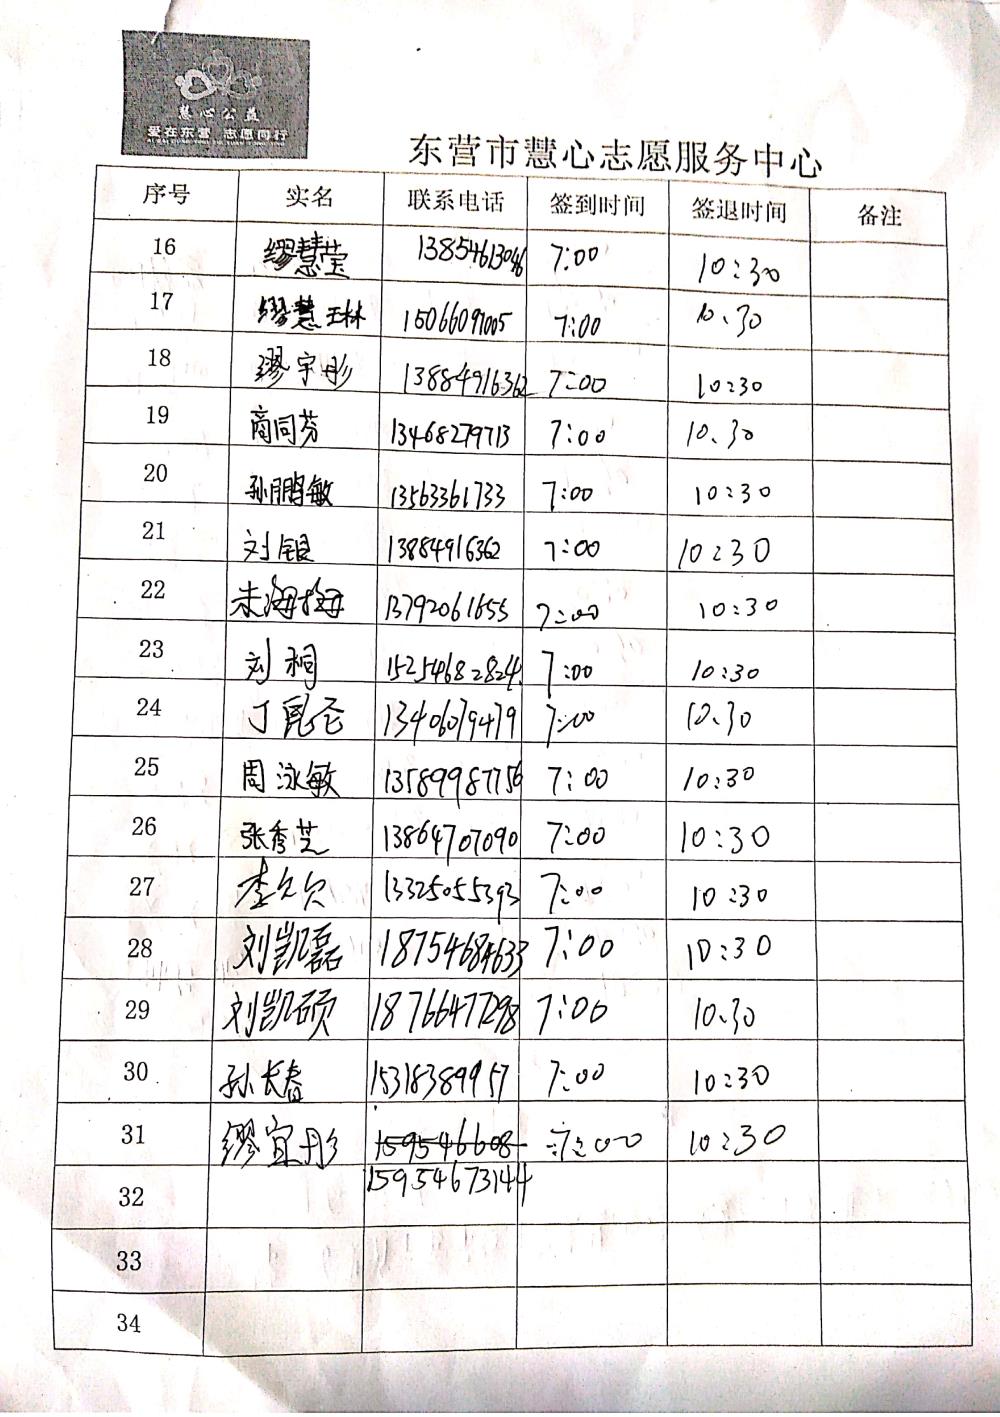 慧心公益
爱在东营 志愿同行
东营市慧心志愿服务中心
序号 实名 联系电话 签到时间 签退时间 备注
16 缪慧莹 13854613046 7:00 10:30
17 缪慧琳 15066097005 7:00 10.30
18 缪宇彤 13884916362 7:00 10:30
19 商同芬 13468279713 7:00 10.30
20 孙鹏敏 13563361733 7:00 10:30
21 刘银 13884916362 7:00 10:30
22 朱海梅 13792061655 7:00 10:30
23 刘桐 15254682824 7:00 10:30
24 丁昆仑 13406079479 7:00 10.30
25 周泳敏 13589987756 7:00 10:30
26 张秀芝 13864707090 7:00 10:30
27 李欠欠 13325055393 7:00 10:30
28 刘凯磊 18754684633 7:00 10:30
29 刘凯硕 18766477298 7:00 10.30
30 孙长春 15318389957 7:00 10:30
31 缪宜彤 159546608 7:00 10:30
32 15954673144
33
34